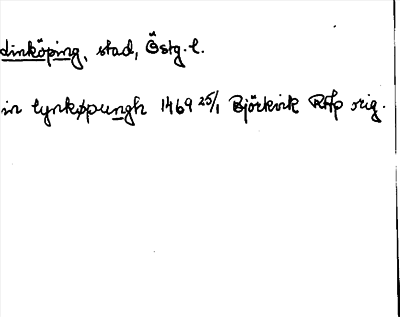 Linköping, stad, Östg. l.
in lynkøpungh 1469 25/1 Björkvik RAp orig.